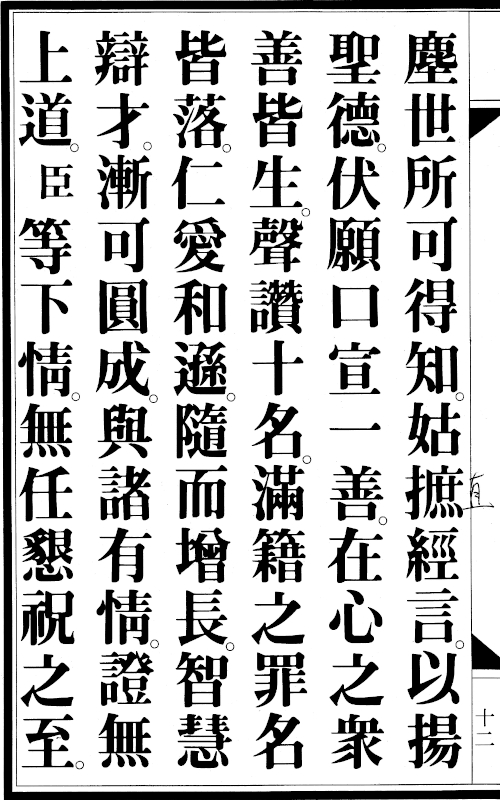 塵世所可得知。姑摭經言。以揚
聖德。伏願口宣一善。在心之衆
善皆生。聲讚十名。滿籍之罪名
皆落。仁愛和遜。隨而增長。智慧
辯才。漸可圓成。與諸有情。證無
上道。臣等下情。無任懇祝之至。
直
十二